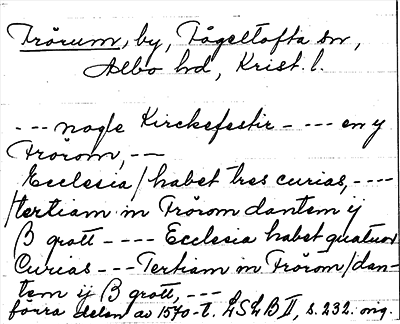 Frörum, by, Fågeltofta sn,
Albo hd, Krist. l.
--- nogle Kirckefestir ---- en y
Frörom, --
Ecclesia/habet tres curias, ----
/tertiam in Frörom dantem ij
β grott ---- Ecclesia habet quatuor
Curias --- Tertiam in Frörom/dan-
tem ij β grott, ---
förra delen av 1570-t. LSLB II, s. 232. orig.